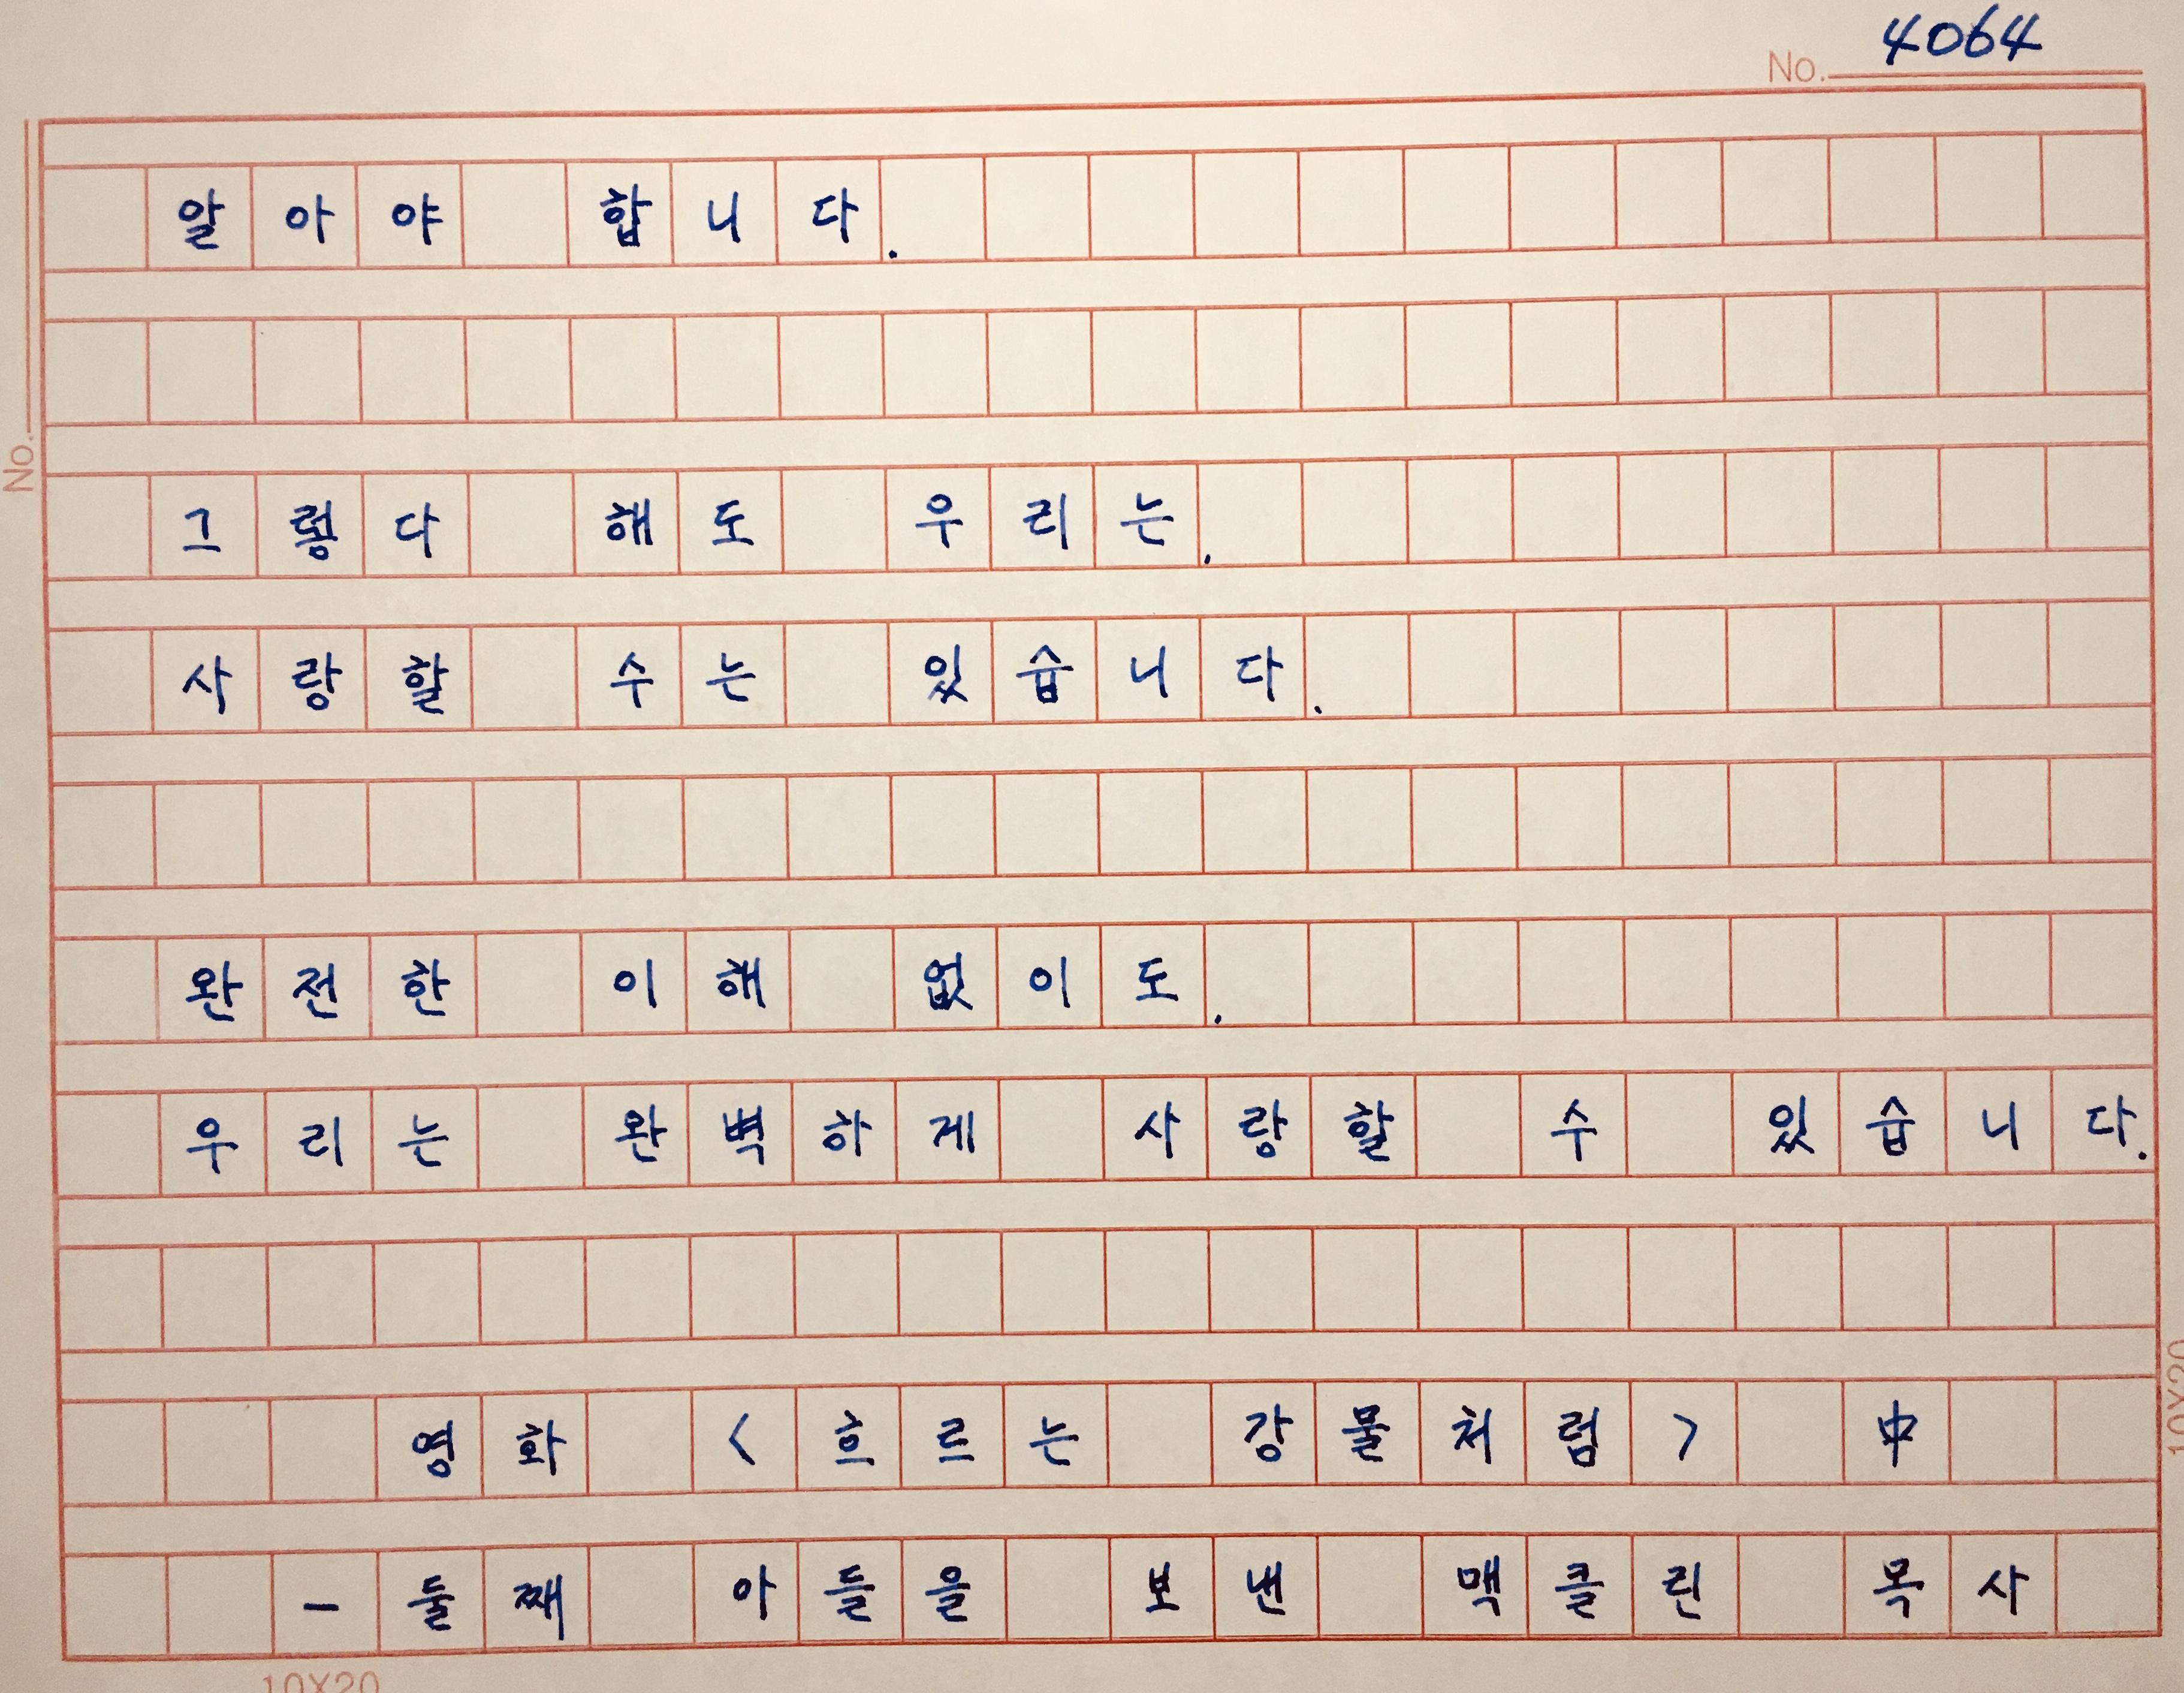 No. 4064
알아야 합니다.
그렇다 해도 우리는.
사랑할 수는 있습니다.
완전한 이해 없이도.
우리는 완벽하게 사랑할 수 있습니다.
영화 <흐르는 강물처럼> 中
- 둘째 아들을 보낸 맥클린 목사
No.
10X20
10X20